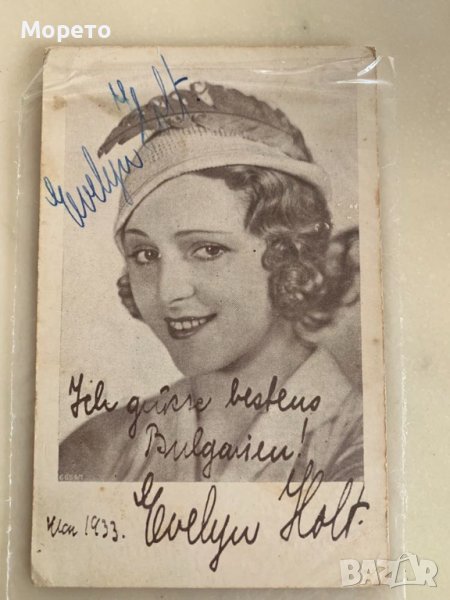 Морето
Evelyn Holt.
Ich grüsse bestens
Bulgarien!
1933.
Evelyn Holt.
BAZAR